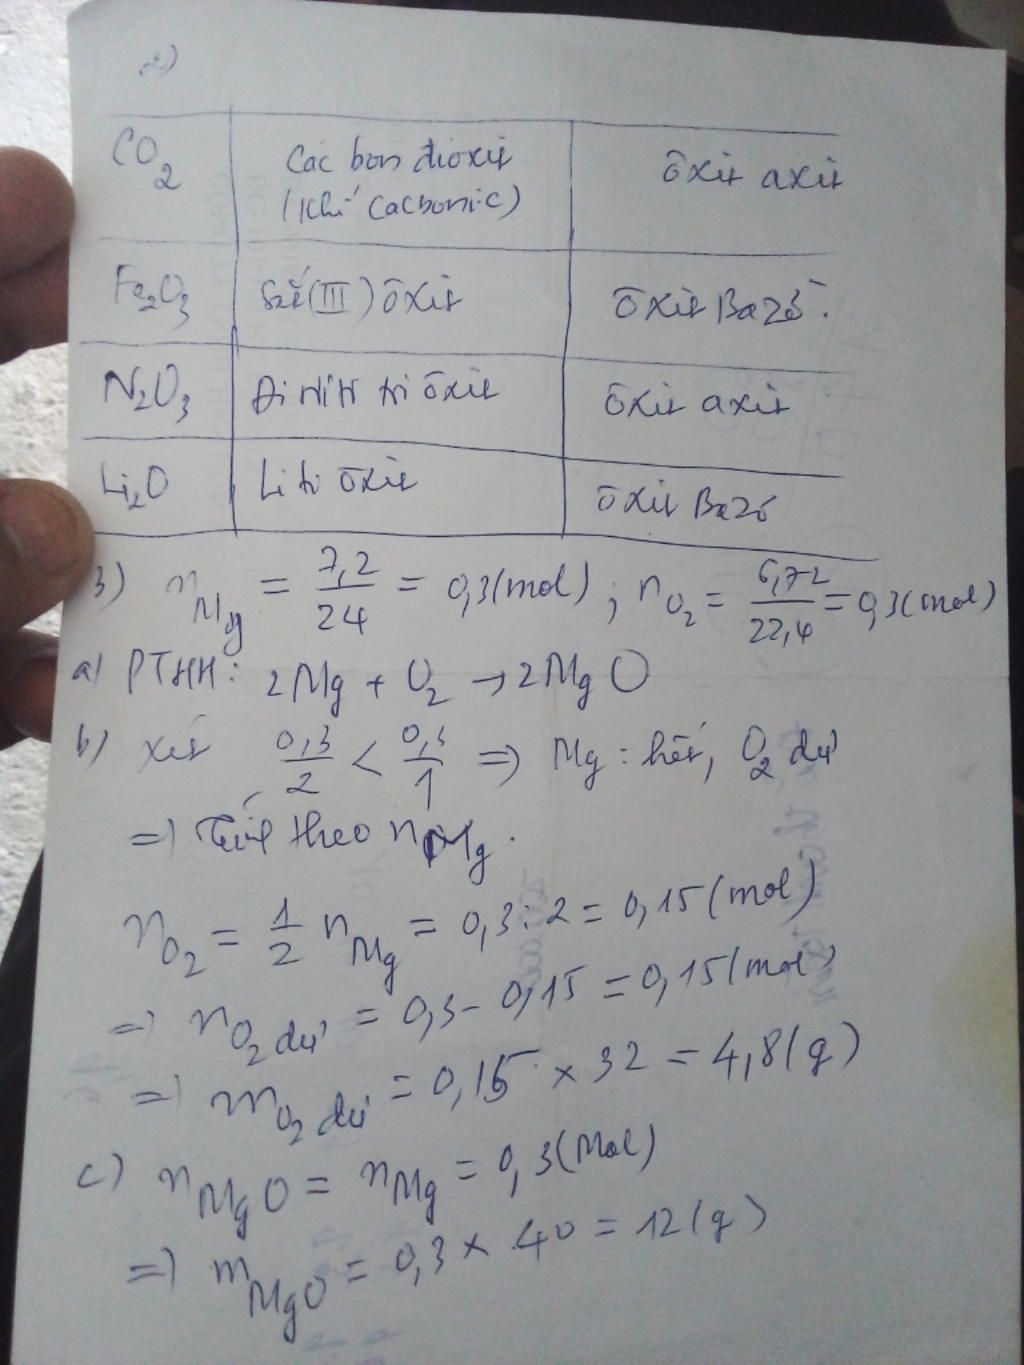 2)
CO₂ Các bon đioxit ôxit axit
(Khí cacbonic)
Fe₂O₃ Sắt (III) ôxit ôxit Bazơ.
N₂O₃ Đi nitơ tri ôxit ôxit axit
Li₂O Li ti ôxit ôxit Bazơ
3) n_Mg = 7,2/24 = 0,3(mol) ; n_O₂ = 6,72/22,4 = 0,3(mol)
a) PTHH: 2Mg + O₂ → 2MgO
b) xét 0,3/2 < 0,3/1 => Mg: hết, O₂ dư
=> Tính theo n_Mg.
n_O₂ = 1/2 n_Mg = 0,3:2 = 0,15(mol)
=> n_O₂ dư = 0,3 - 0,15 = 0,15(mol)
=> m_O₂ dư = 0,15 × 32 = 4,8(g)
c) n_MgO = n_Mg = 0,3(Mol)
=> m_MgO = 0,3 × 40 = 12(g)